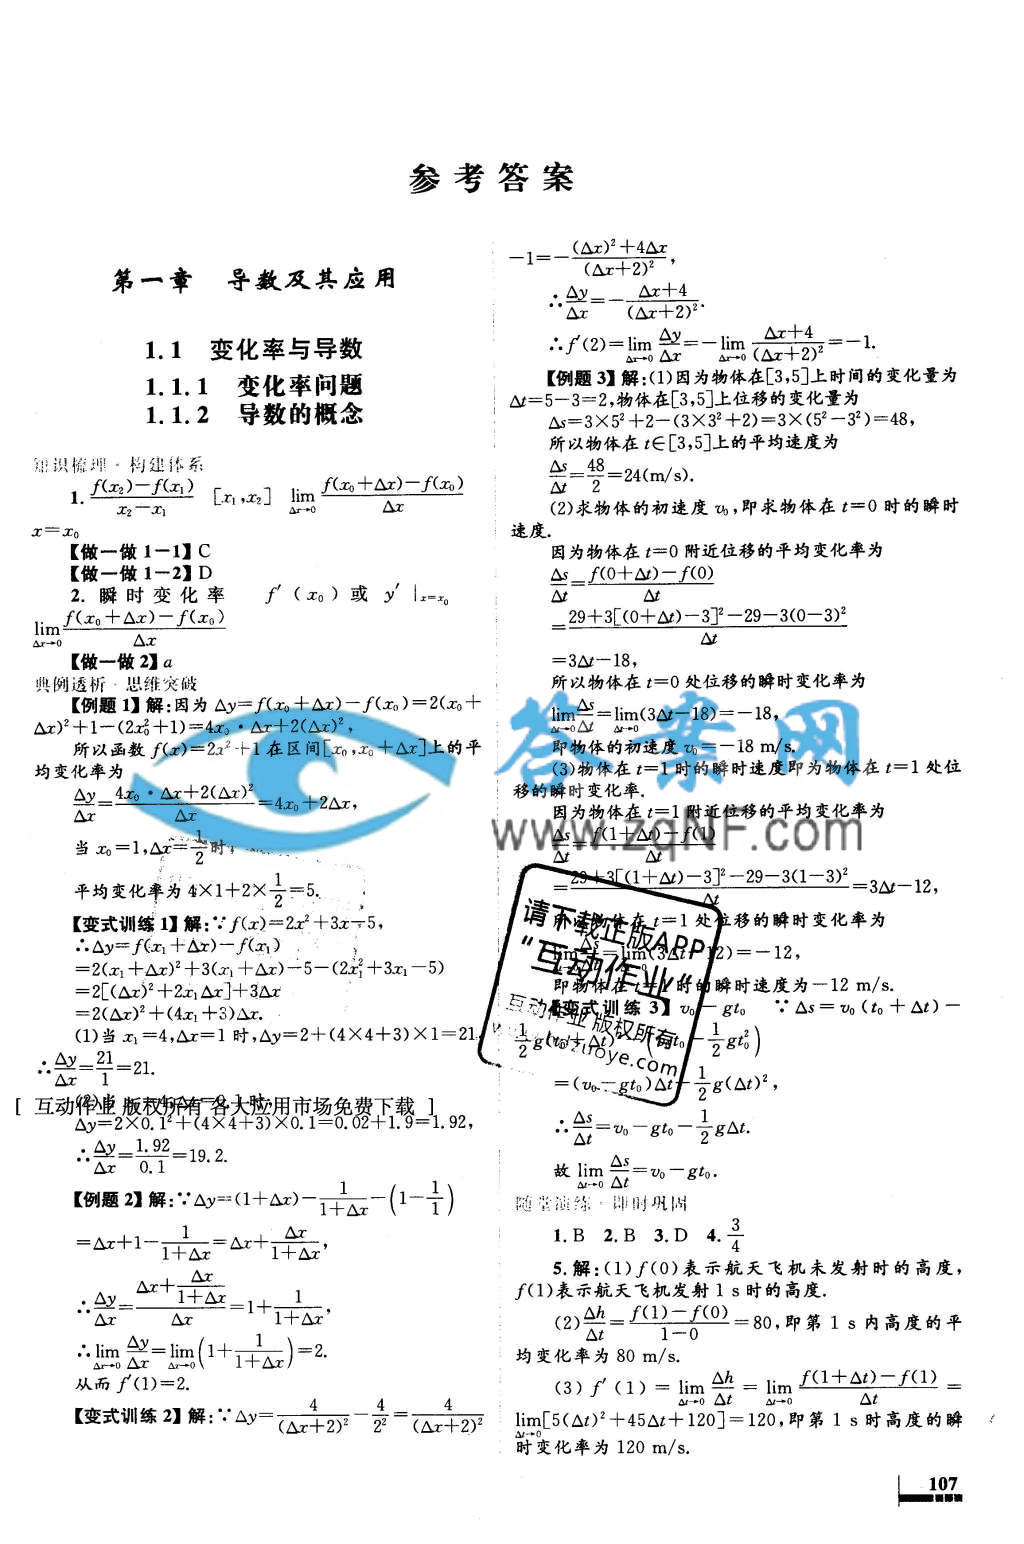 参考答案
第一章 导数及其应用
1.1 变化率与导数
1.1.1 变化率问题
1.1.2 导数的概念
知识梳理·构建体系
1. \frac{f(x₂)-f(x₁)}{x₂-x₁} [x₁,x₂] \lim_{Δx→0} \frac{f(x₀+Δx)-f(x₀)}{Δx}
x=x₀
【做一做1-1】C
【做一做1-2】D
2. 瞬时变化率 f′(x₀)或 y′|ₓ₌ₓ₀
\lim_{Δx→0} \frac{f(x₀+Δx)-f(x₀)}{Δx}
【做一做2】a
典例透析·思维突破
【例题1】解:因为 Δy=f(x₀+Δx)-f(x₀)=2(x₀+
Δx)²+1-(2x₀²+1)=4x₀·Δx+2(Δx)²,
所以函数 f(x)=2x²+1在区间[x₀,x₀+Δx]上的平
均变化率为
\frac{Δy}{Δx}=\frac{4x₀·Δx+2(Δx)²}{Δx}=4x₀+2Δx,
当 x₀=1,Δx=\frac{1}{2}时,
平均变化率为 4×1+2×\frac{1}{2}=5.
【变式训练1】解:∵f(x)=2x²+3x-5,
∴Δy=f(x₁+Δx)-f(x₁)
=2(x₁+Δx)²+3(x₁+Δx)-5-(2x₁²+3x₁-5)
=2[(Δx)²+2x₁Δx]+3Δx
=2(Δx)²+(4x₁+3)Δx.
(1)当 x₁=4,Δx=1时,Δy=2+(4×4+3)×1=21,
∴\frac{Δy}{Δx}=\frac{21}{1}=21.
[ 互动作业 版权所有 各大应用市场免费下载 ]
Δy=2×0.1²+(4×4+3)×0.1=0.02+1.9=1.92,
∴\frac{Δy}{Δx}=\frac{1.92}{0.1}=19.2.
【例题2】解:∵Δy=(1+Δx)-\frac{1}{1+Δx}-(1-\frac{1}{1})
=Δx+1-\frac{1}{1+Δx}=Δx+\frac{Δx}{1+Δx},
∴\frac{Δy}{Δx}=\frac{Δx+\frac{Δx}{1+Δx}}{Δx}=1+\frac{1}{1+Δx},
∴\lim_{Δx→0}\frac{Δy}{Δx}=\lim_{Δx→0}(1+\frac{1}{1+Δx})=2.
从而 f′(1)=2.
【变式训练2】解:∵Δy=\frac{4}{(Δx+2)²}-\frac{4}{2²}=\frac{4}{(Δx+2)²}
-1=-\frac{(Δx)²+4Δx}{(Δx+2)²},
∴\frac{Δy}{Δx}=-\frac{Δx+4}{(Δx+2)²}.
∴f′(2)=\lim_{Δx→0}\frac{Δy}{Δx}=-\lim_{Δx→0}\frac{Δx+4}{(Δx+2)²}=-1.
【例题3】解:(1)因为物体在[3,5]上时间的变化量为
Δt=5-3=2,物体在[3,5]上位移的变化量为
Δs=3×5²+2-(3×3²+2)=3×(5²-3²)=48,
所以物体在 t∈[3,5]上的平均速度为
\frac{Δs}{Δt}=\frac{48}{2}=24(m/s).
(2)求物体的初速度 v₀,即求物体在 t=0 时的瞬时
速度.
因为物体在 t=0 附近位移的平均变化率为
\frac{Δs}{Δt}=\frac{f(0+Δt)-f(0)}{Δt}
=\frac{29+3[(0+Δt)-3]²-29-3(0-3)²}{Δt}
=3Δt-18,
所以物体在 t=0 处位移的瞬时变化率为
\lim_{Δt→0}\frac{Δs}{Δt}=\lim_{Δt→0}(3Δt-18)=-18,
即物体的初速度 v₀=-18 m/s.
(3)物体在 t=1 时的瞬时速度即为物体在 t=1 处位
移的瞬时变化率.
因为物体在 t=1 附近位移的平均变化率为
\frac{Δs}{Δt}=\frac{f(1+Δt)-f(1)}{Δt}
=\frac{29+3[(1+Δt)-3]²-29-3(1-3)²}{Δt}=3Δt-12,
物体在 t=1 处位移的瞬时变化率为
\lim\frac{Δs}{Δt}=\lim(3Δt-12)=-12,
即物体在 t=1 时的瞬时速度为-12 m/s.
【变式训练3】 v₀-gt₀ ∵Δs=v₀(t₀+Δt)-
\frac{1}{2}g(t₀+Δt)² t₀-\frac{1}{2}gt₀²)
=(v₀-gt₀)Δt-\frac{1}{2}g(Δt)²,
∴\frac{Δs}{Δt}=v₀-gt₀-\frac{1}{2}gΔt.
故 \lim_{Δt→0}\frac{Δs}{Δt}=v₀-gt₀.
随堂演练·即时巩固
1. B 2. B 3. D 4. \frac{3}{4}
5. 解:(1)f(0)表示航天飞机未发射时的高度,
f(1)表示航天飞机发射 1 s 时的高度.
(2)\frac{Δh}{Δt}=\frac{f(1)-f(0)}{1-0}=80,即第 1 s 内高度的平
均变化率为 80 m/s.
(3) f′(1)=\lim_{Δt→0}\frac{Δh}{Δt}=\lim_{Δt→0}\frac{f(1+Δt)-f(1)}{Δt}=
\lim_{Δt→0}[5(Δt)²+45Δt+120]=120,即第 1 s 时高度的瞬
时变化率为 120 m/s.
107
答案网
www.zqNF.com
请下载正版APP
“互动作业”
互动作业 版权所有
zuoye.com